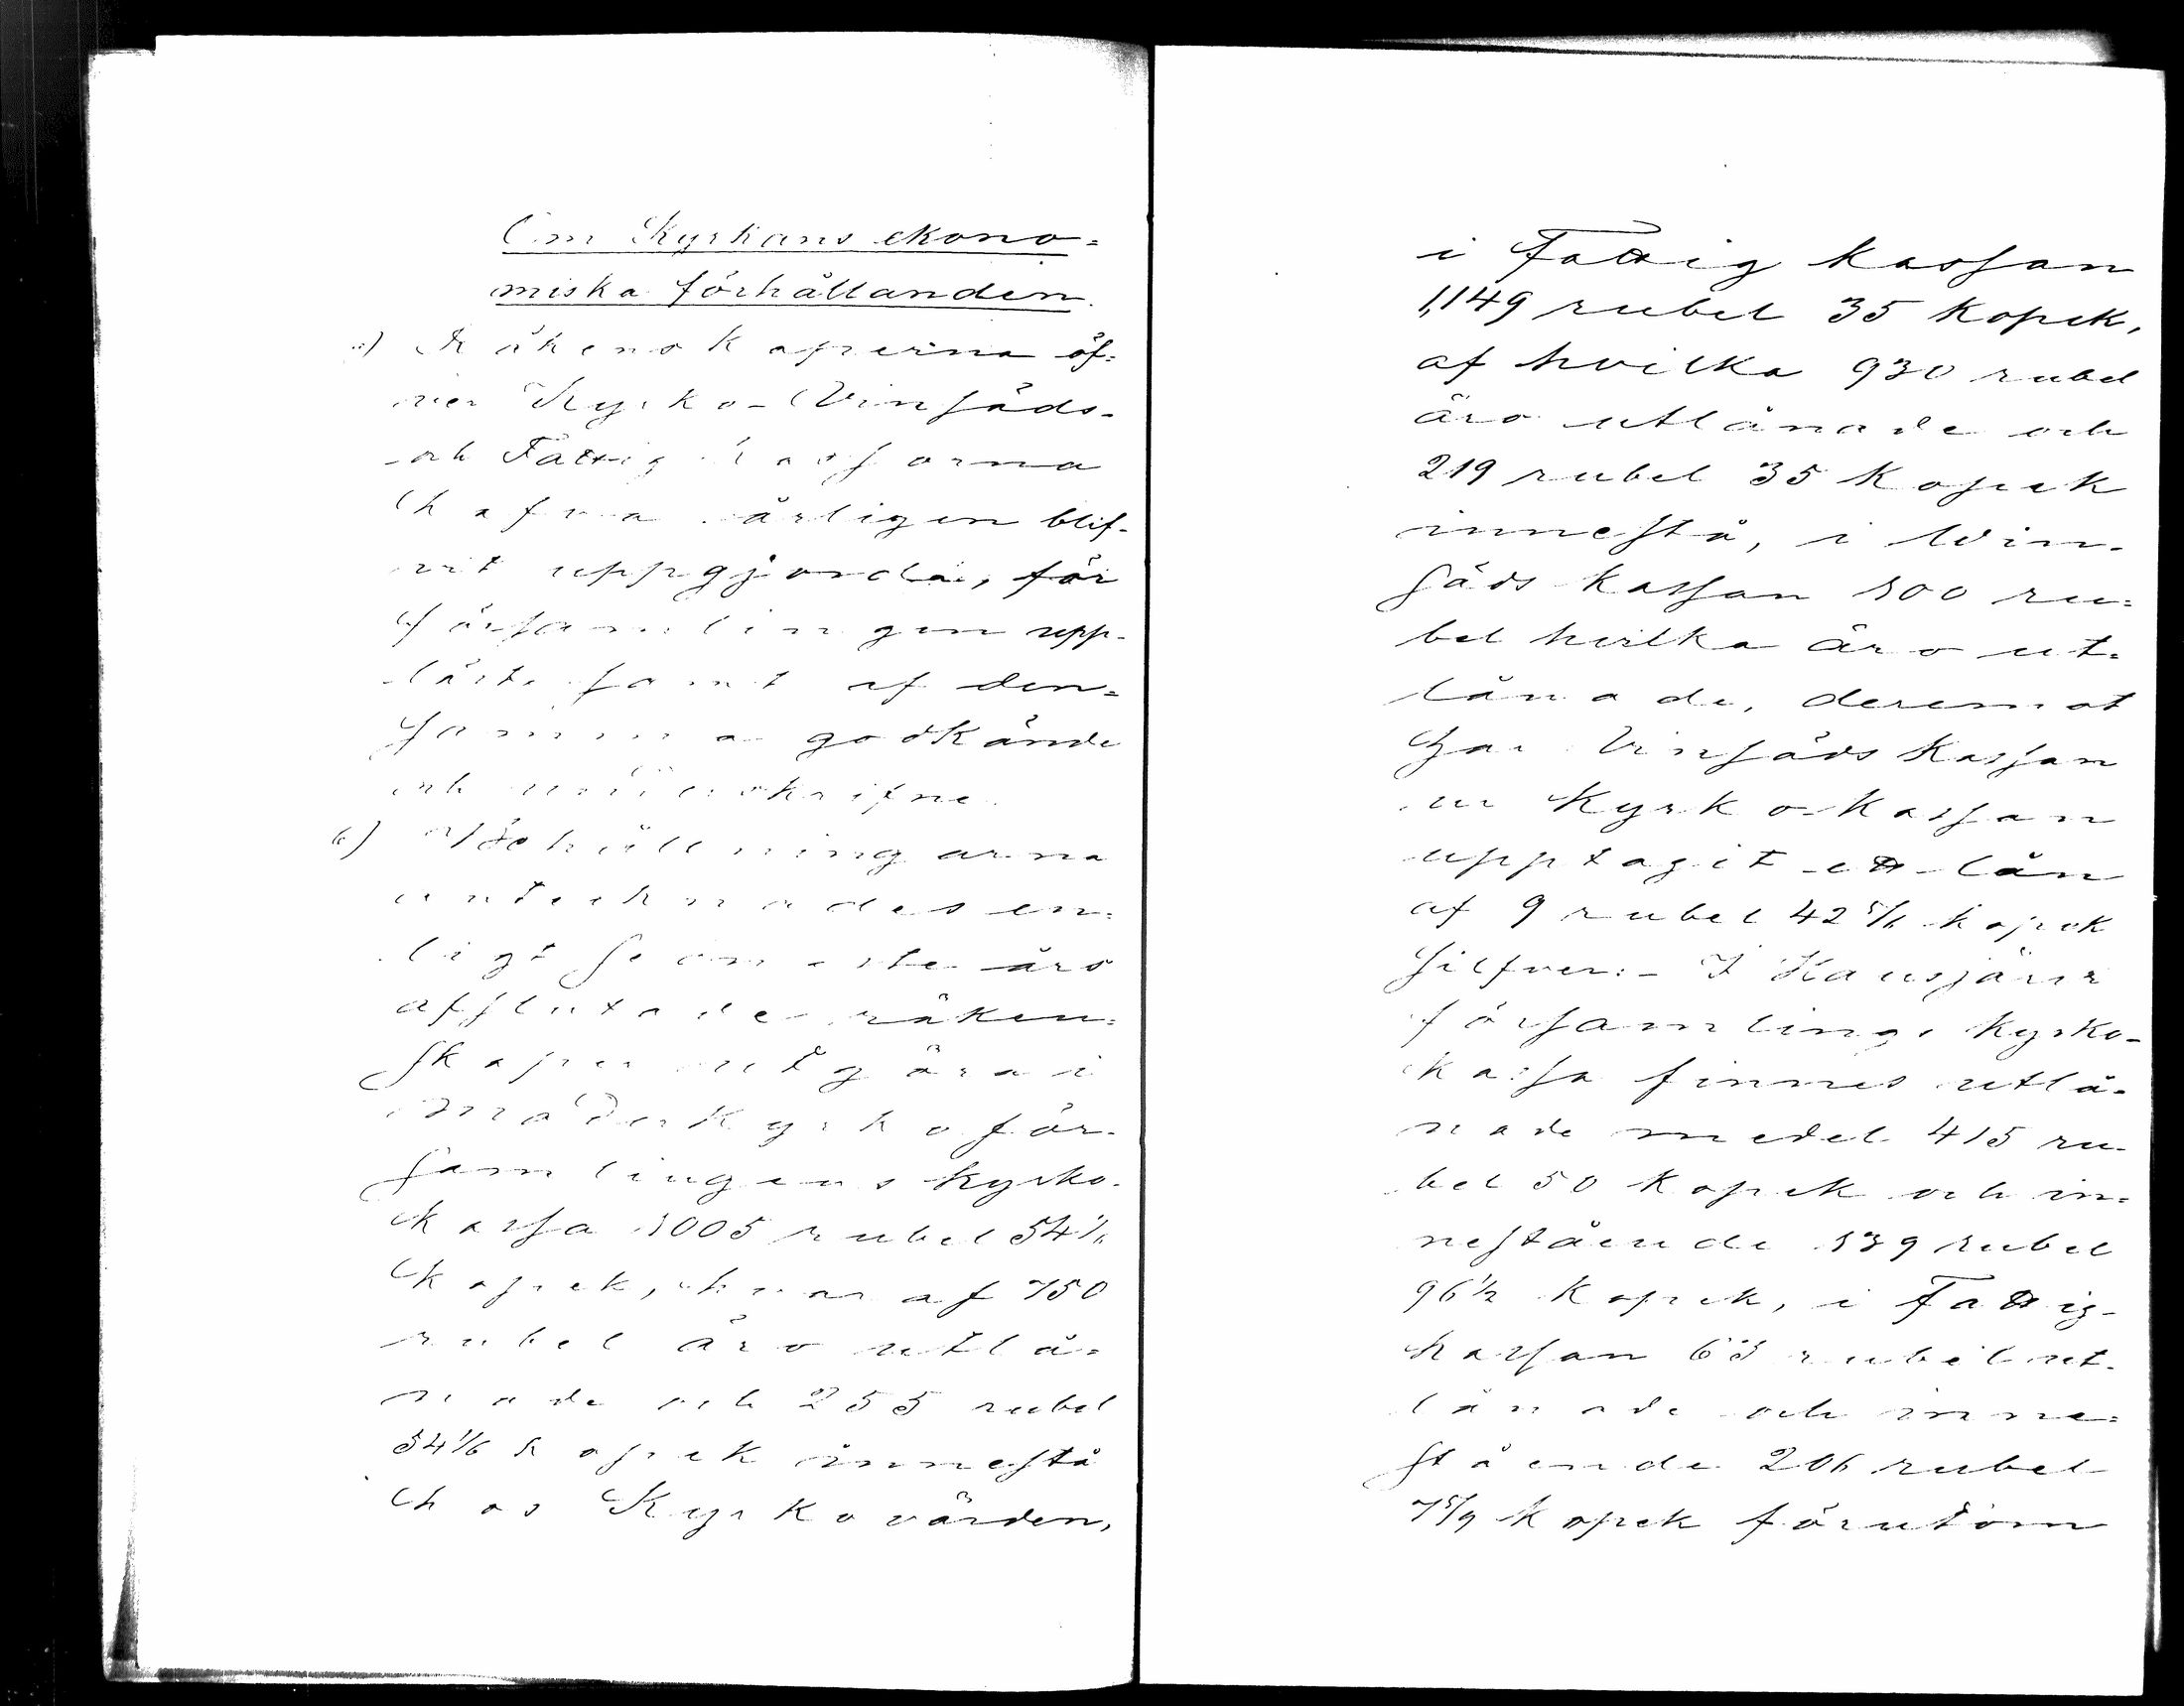 Om Kyrkans ekono=
miska förhållanden.
a) Räkenskaperna öf=
ver Kyrko- Vinsäds-
och Fattig kassorna
hafva årligen blif-
vit uppgjorda, för
församlingen upp-
läste samt af den=
samma godkände
och underskrifne.
b) Behållningarna
antecknades en=
ligt senaste års
afslutade räken=
skaper utgöra i
Moderkyrko för-
samlingens kyrko-
kassa 1005 rubel 54 1/6
kopek, hvaraf 750
rubel äro utlå=
nade och 255 rubel
54 1/6 kopek innestå
hos Kyrkovärden,
i Fattig kassan
1,149 rubel 35 kopek,
af hvilka 930 rubel
äro utlånade och
219 rubel 35 kopek
innestå, i Win-
säds kassan 300 ru=
bel hvilka äro ut=
lånade, deremot
har Vinsäds kassan
ur Kyrko-kassan
upptagit ett lån
af 9 rubel 42 5/6 kopek
silfver.- I Kausjärvi
församlings kyrko-
kassa finnes utlå-
nade medel 415 ru-
bel 50 kopek och in=
nestående 139 rubel
96 1/2 kopek, i Fattig-
kassan 63 rubel ut-
lånade och inne=
stående 206 rubel
7 5/9 kopek förutom